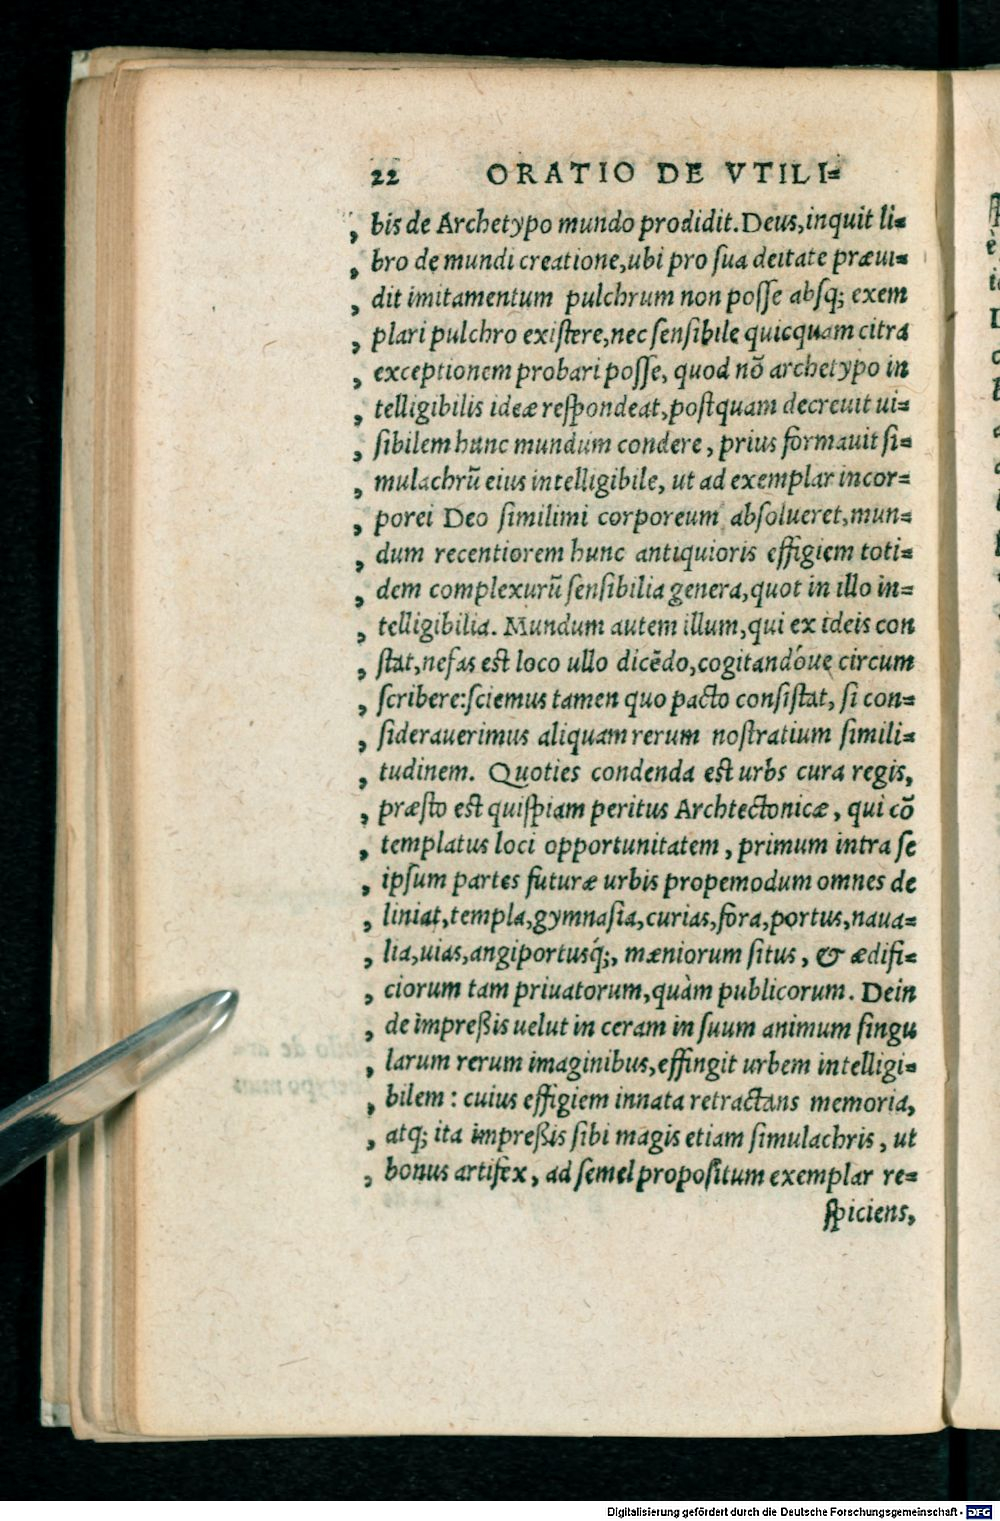 22 ORATIO DE VTILI-
, bis de Archetypo mundo prodidit. Deus, inquit li-
, bro de mundi creatione, ubi pro sua deitate præui-
, dit imitamentum pulchrum non posse absq; exem
, plari pulchro existere, nec sensibile quicquam citra
, exceptionem probari posse, quod nõ archetypo in
, telligibilis ideæ respondeat, postquam decreuit ui-
, sibilem hunc mundum condere, prius formauit si-
, mulachrũ eius intelligibile, ut ad exemplar incor-
, porei Deo similimi corporeum absolueret, mun-
, dum recentiorem hunc antiquioris effigiem toti-
, dem complexurũ sensibilia genera, quot in illo in-
, telligibilia. Mundum autem illum, qui ex ideis con
, stat, nefas est loco ullo dicẽdo, cogitandóue circum
, scribere: sciemus tamen quo pacto consistat, si con-
, siderauerimus aliquam rerum nostratium simili-
, tudinem. Quoties condenda est urbs cura regis,
, præsto est quispiam peritus Archtectonicæ, qui cõ
, templatus loci opportunitatem, primum intra se
, ipsum partes futuræ urbis propemodum omnes de
, liniat, templa, gymnasia, curias, fora, portus, naua-
, lia, uias, angiportusq́;, mæniorum situs, & ædifi-
, ciorum tam priuatorum, quàm publicorum. Dein
, de impreßis uelut in ceram in suum animum singu
, larum rerum imaginibus, effingit urbem intelligi-
, bilem: cuius effigiem innata retractans memoria,
, atq; ita impreßis sibi magis etiam simulachris, ut
, bonus artifex, ad semel propositum exemplar re-
spiciens,
Digitalisierung gefördert durch die Deutsche Forschungsgemeinschaft - DFG